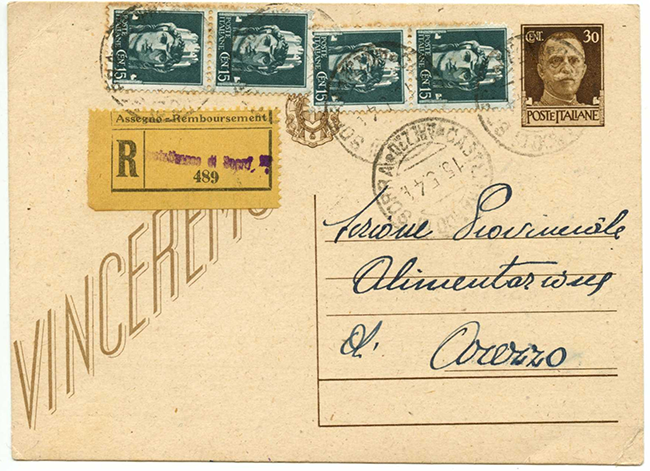 POSTE ITALIANE CEN. 15
POSTE ITALIANE CEN. 15
POSTE ITALIANE CEN. 15
POSTE ITALIANE CEN. 15
CENT. 30
POSTE ITALIANE
Assegno - Remboursement
R
di
489
15.5.41
VINCEREMO
Sezione Provinciale
Alimentazione
di Arezzo